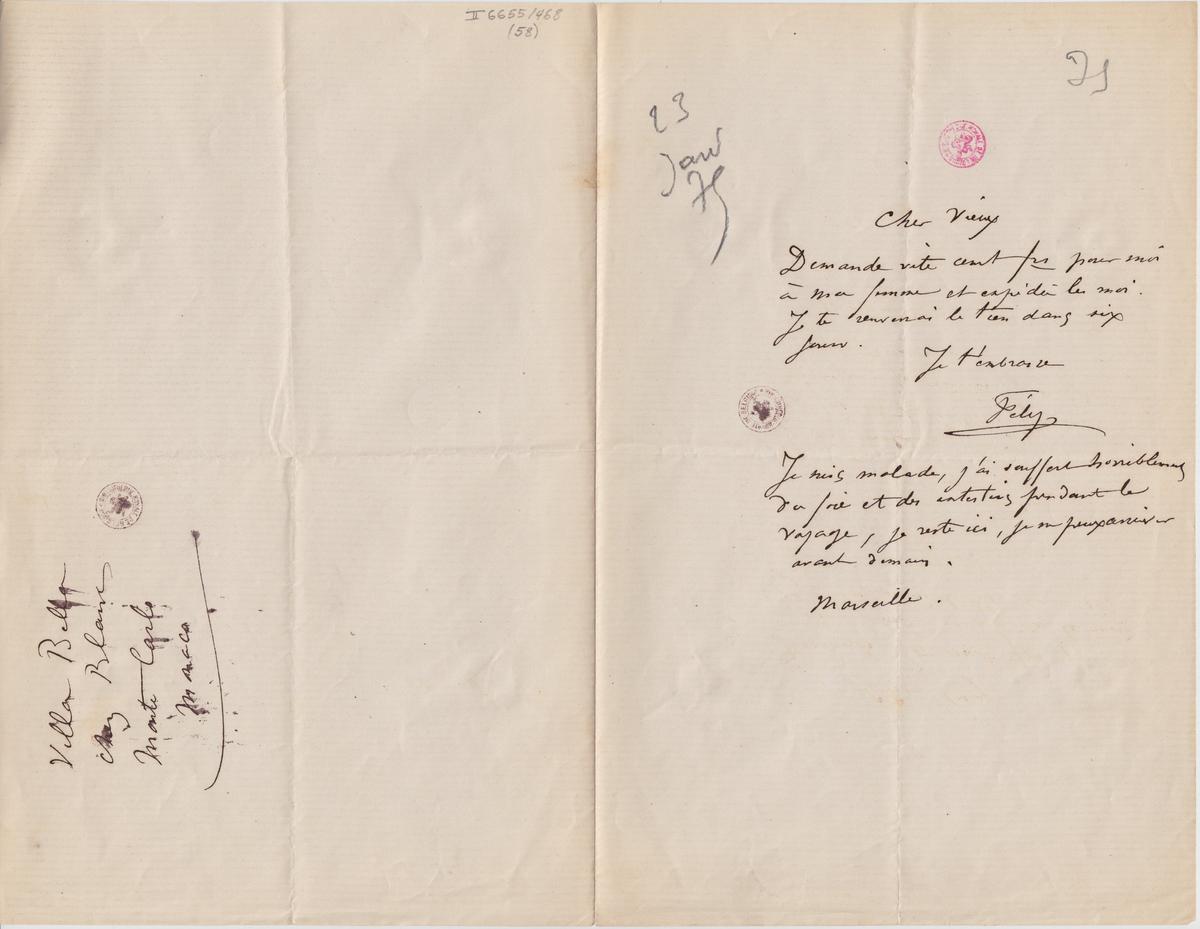 II 6655/468
(58)
Villa Bella
chez Blanc
Monte Carlo
Monaco
75
23
Janv
75
Cher Vieux
Demande vite cent frs pour moi
à ma femme et expédie les moi.
Je te renverrai le tien dans six
jours.
Je t'embrasse
Fély
Je suis malade, j'ai souffert horriblement
du foie et des intestins pendant le
voyage, je reste ici, je ne peux arriver
avant demain.
Marseille.